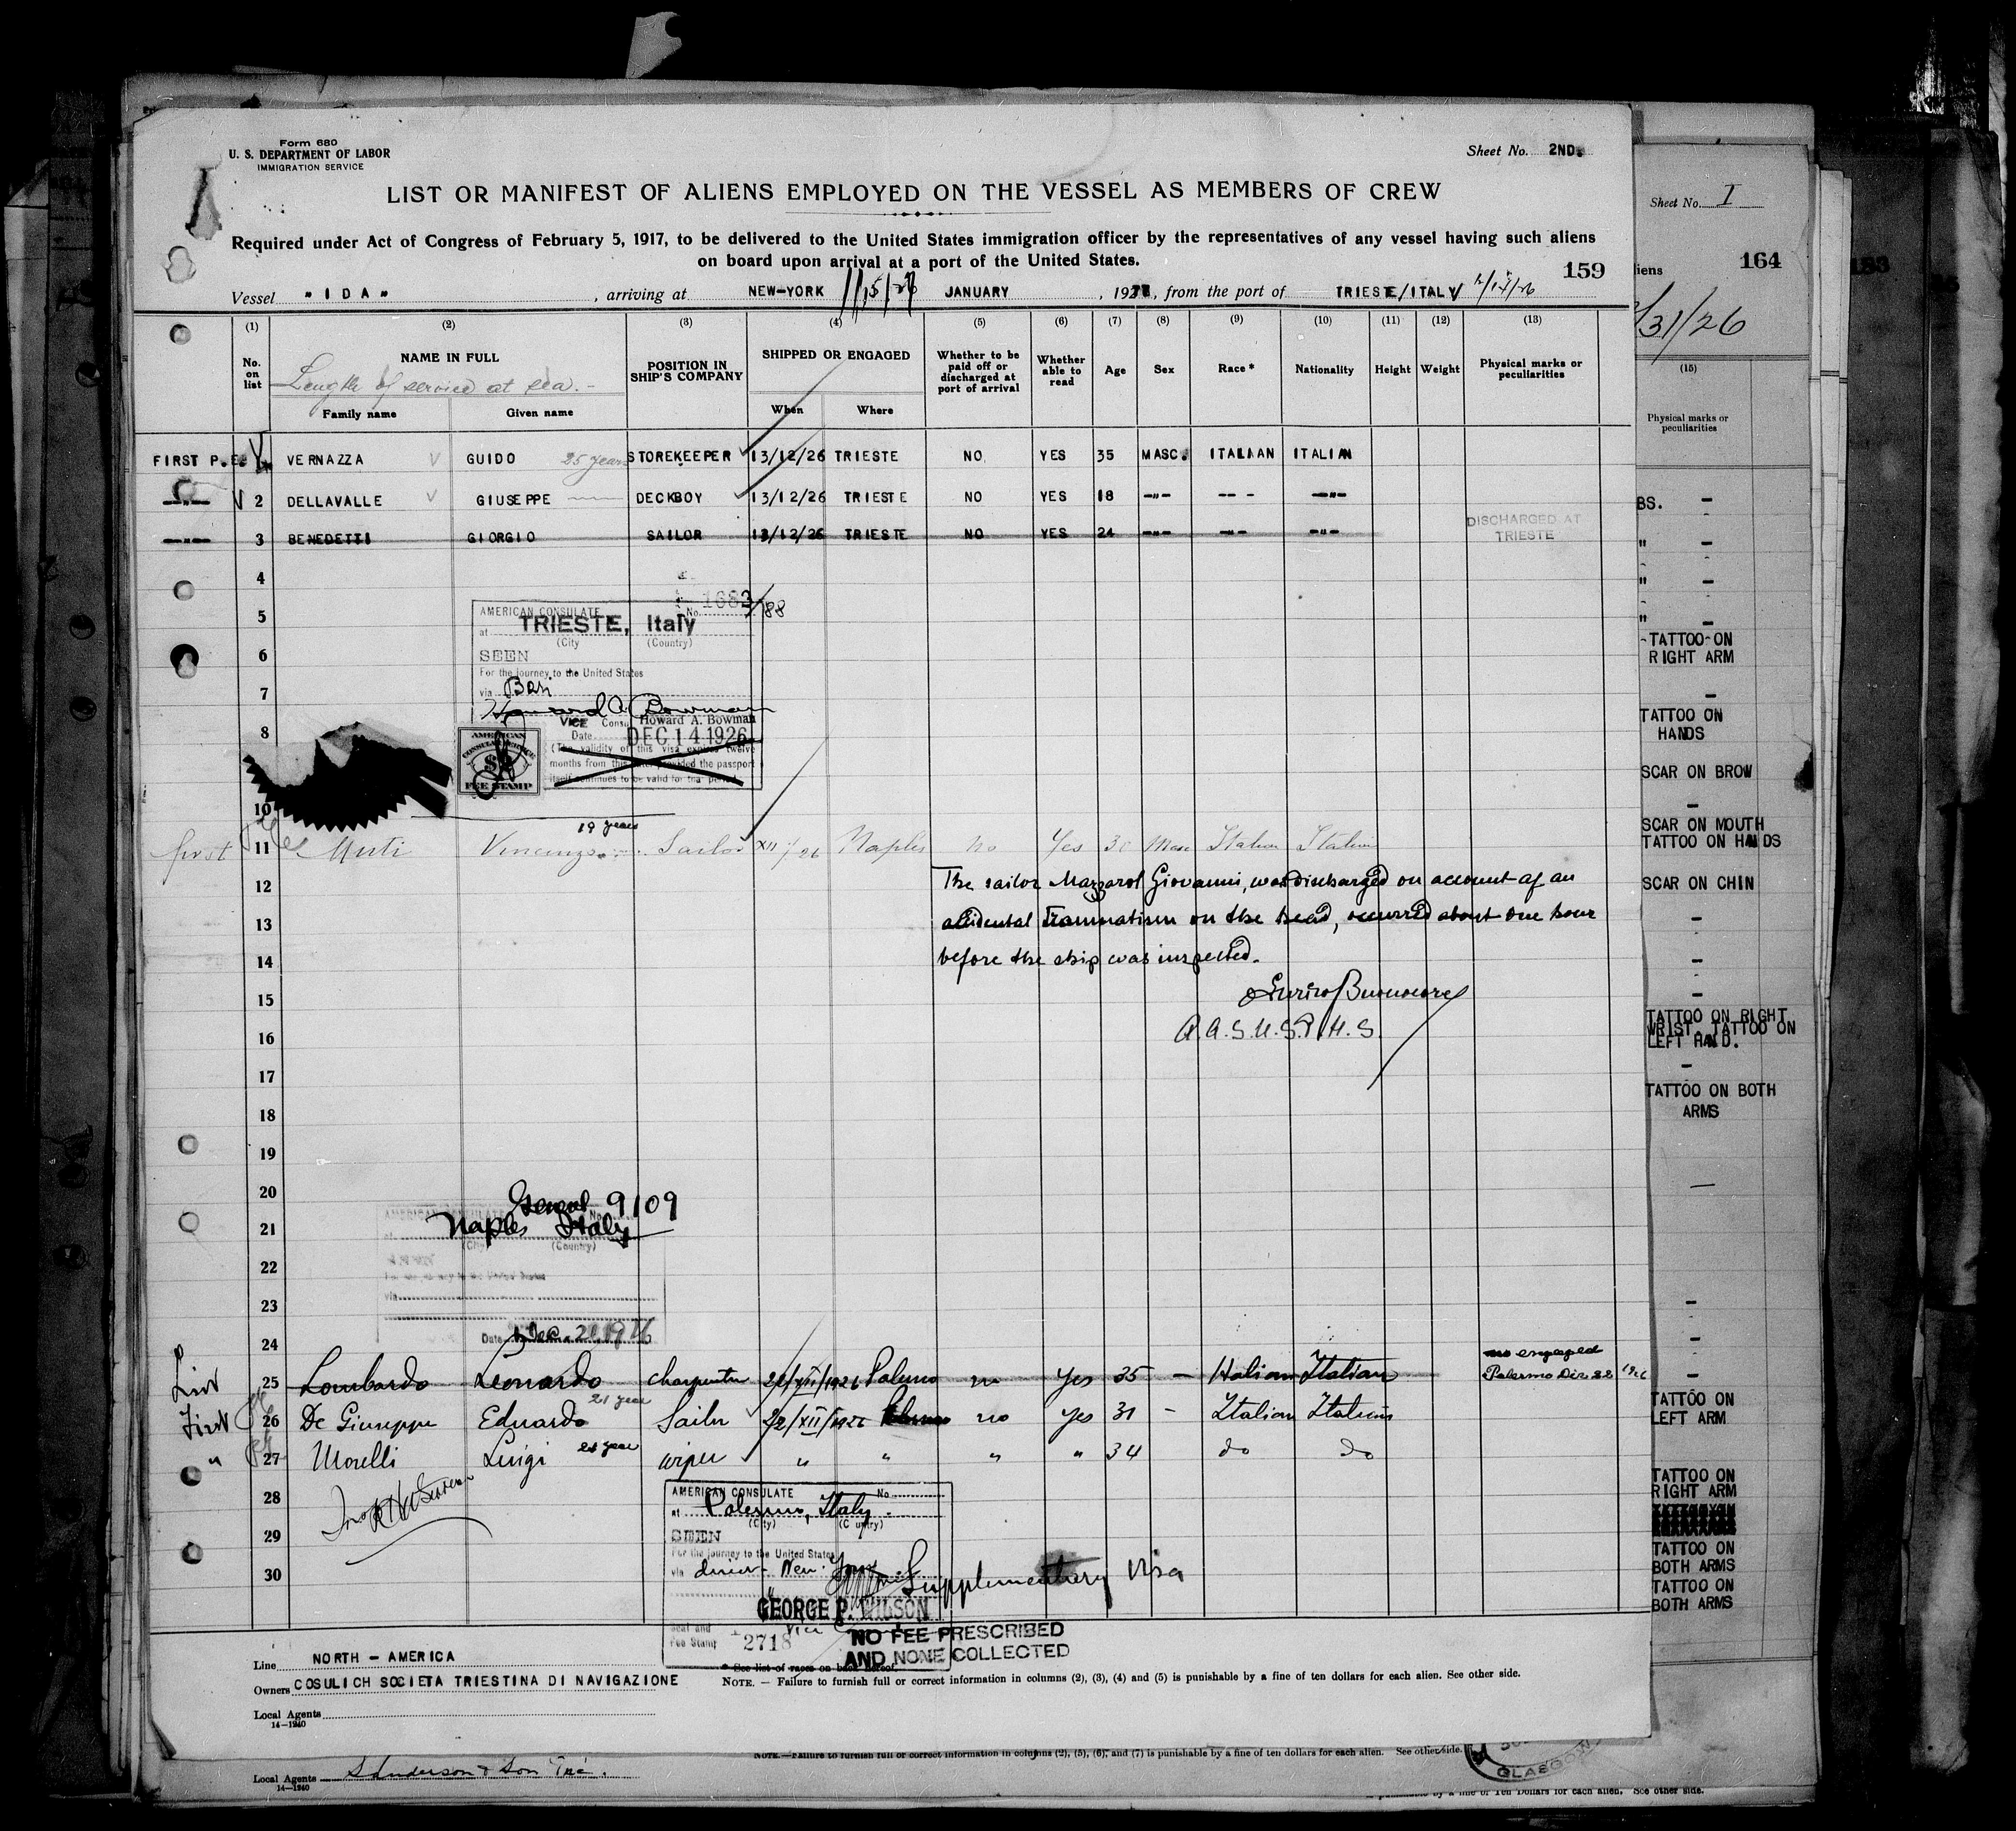 Form 680
U. S. DEPARTMENT OF LABOR
IMMIGRATION SERVICE
Sheet No. 2ND.
LIST OR MANIFEST OF ALIENS EMPLOYED ON THE VESSEL AS MEMBERS OF CREW
Required under Act of Congress of February 5, 1917, to be delivered to the United States immigration officer by the representatives of any vessel having such aliens
on board upon arrival at a port of the United States.
159
Vessel "IDA", arriving at NEW-YORK JANUARY, 192, from the port of TRIESTE/ITALY
(1) (2) (3) (4) (5) (6) (7) (8) (9) (10) (11) (12) (13)
No. on list
NAME IN FULL
Length of service at sea. -
Family name Given name
POSITION IN SHIP'S COMPANY
SHIPPED OR ENGAGED
When Where
Whether to be paid off or discharged at port of arrival
Whether able to read
Age Sex Race* Nationality Height Weight
Physical marks or peculiarities
FIRST P.E. VERNAZZA GUIDO 25 years STOREKEEPER 13/12/26 TRIESTE NO. YES 35 MASC. ITALIAN ITALIAN
—"— 2 DELLAVALLE GIUSEPPE DECKBOY 13/12/26 TRIESTE NO YES 18 —"— —— - —"—
—"— 3 BENEDETTI GIORGIO SAILOR 13/12/26 TRIESTE NO YES 24 —"— —"— —"— DISCHARGED AT TRIESTE
4
5
6
7
8
10
AMERICAN CONSULATE No. 1683/88
at TRIESTE, Italy
(City (Country)
SEEN
For the journey to the United States
via Bari
Howard A. Bowman
VICE Consul Howard A. Bowman
Date DEC 14 1926
(The validity of this visa expires twelve
months from this date provided the passport
itself continues to be valid for that period
AMERICAN
CONSULAR SERVICE
FEE STAMP
first 11 Muti Vincenzo 19 years Sailor XII 26 Naples No Yes 30 Masc Italian Italian
12 The sailor Mazzarol Giovanni, was discharged on account of an
13 accidental Traumatism on the head, occurred about one hour
14 before the ship was inspected.
15 Enrico Buonocore
16 A.A.S.U.S.P.H.S.
17
18
19
20
21
22
23
24
9109
AMERICAN CONSULATE No.
Naples Italy
(City) (Country)
via
Date Dec. 21 1926
25 Lombardo Leonardo charpenter 22/XII/1926 Palermo no Yes 35 — Italian Italian engaged
Palermo 22 1926
First 26 De Giuseppe Eduardo 21 year Sailor 22/XII/1926 no yes 31 — Italian Italian
" 27 Morelli Luigi wiper " " " " 34 do do
28
29
30
AMERICAN CONSULATE No.
at Palermo, Italy.
(City) (Country)
SEEN
For the journey to the United States
via New York
Supplementary Visa
GEORGE P. WILSON
Seal and
Fee Stamp 2718
NO FEE PRESCRIBED
AND NONE COLLECTED
* See list of races on back hereof.
Line NORTH - AMERICA
Owners COSULICH SOCIETA TRIESTINA DI NAVIGAZIONE
NOTE. — Failure to furnish full or correct information in columns (2), (3), (4) and (5) is punishable by a fine of ten dollars for each alien. See other side.
Local Agents
14—1240
NOTE.—Failure to furnish full or correct information in columns (2), (5), (6), and (7) is punishable by a fine of ten dollars for each alien. See other side.
Local Agents Sanderson & Son Inc.
14—1240
GLASGOW
for each alien. See other side.
Sheet No. I
164
183
liens
/31/26
(15)
Physical marks or peculiarities
BS.
TATTOO ON
RIGHT ARM
TATTOO ON
HANDS
SCAR ON BROW
SCAR ON MOUTH
TATTOO ON HANDS
SCAR ON CHIN
TATTOO ON RIGHT
WRIST. TATTOO ON
LEFT HAND.
TATTOO ON BOTH
ARMS
TATTOO ON
LEFT ARM
TATTOO ON
RIGHT ARM
TATTOO ON
BOTH ARMS
TATTOO ON
BOTH ARMS